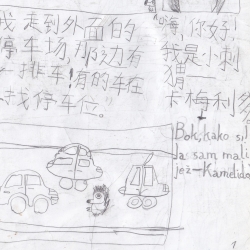 我走到外面的
停车场,那边有
一排车!有的车在
找停车位。
嗨,你好!
我是小刺
猬——
卡梅利多
Bok, kako si
Ja sam mali
jež – Kamelido
1